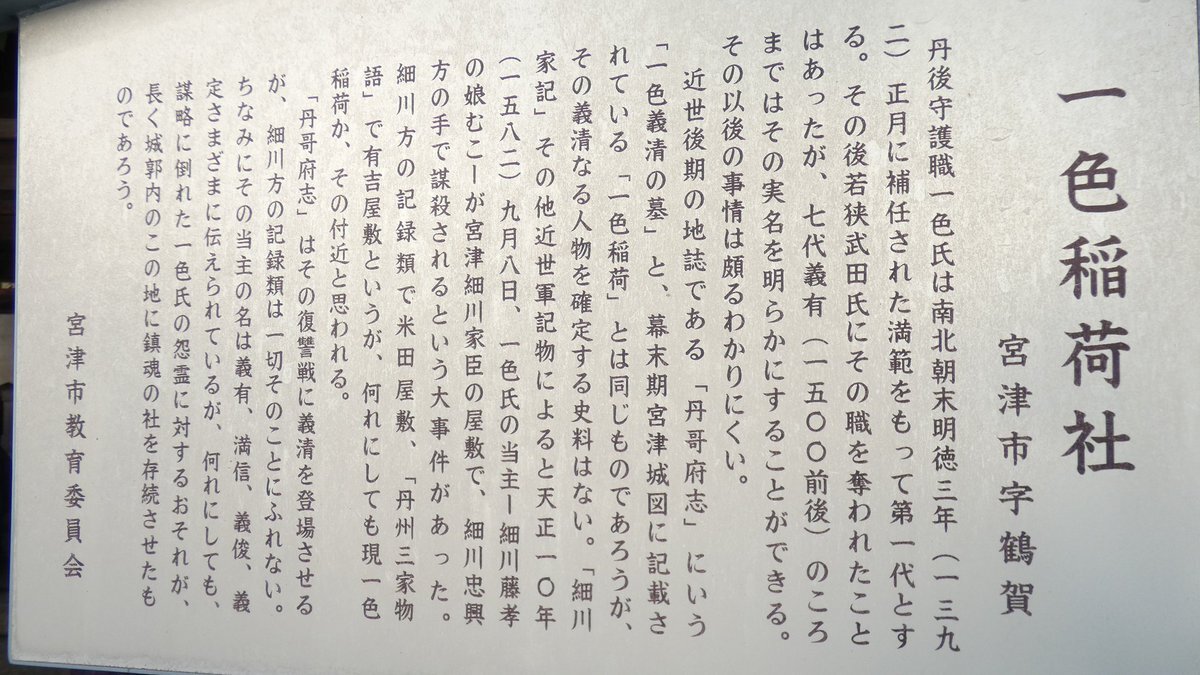 一色稲荷社
宮津市字鶴賀
丹後守護職一色氏は南北朝末明徳三年（一三九
二）正月に補任された満範をもって第一代とす
る。その後若狭武田氏にその職を奪われたこと
はあったが、七代義有（一五〇〇前後）のころ
まではその実名を明らかにすることができる。
その以後の事情は頗るわかりにくい。
近世後期の地誌である「丹哥府志」にいう
「一色義清の墓」と、幕末期宮津城図に記載さ
れている「一色稲荷」とは同じものであろうが、
その義清なる人物を確定する史料はない。「細川
家記」その他近世軍記物によると天正一〇年
（一五八二）九月八日、一色氏の当主ー細川藤孝
の娘むこーが宮津細川家臣の屋敷で、細川忠興
方の手で謀殺されるという大事件があった。
細川方の記録類で米田屋敷、「丹州三家物
語」で有吉屋敷というが、何れにしても現一色
稲荷か、その付近と思われる。
「丹哥府志」はその復讐戦に義清を登場させる
が、細川方の記録類は一切そのことにふれない。
ちなみにその当主の名は義有、満信、義俊、義
定さまざまに伝えられているが、何れにしても、
謀略に倒れた一色氏の怨霊に対するおそれが、
長く城郭内のこの地に鎮魂の社を存続させたも
のであろう。
宮津市教育委員会